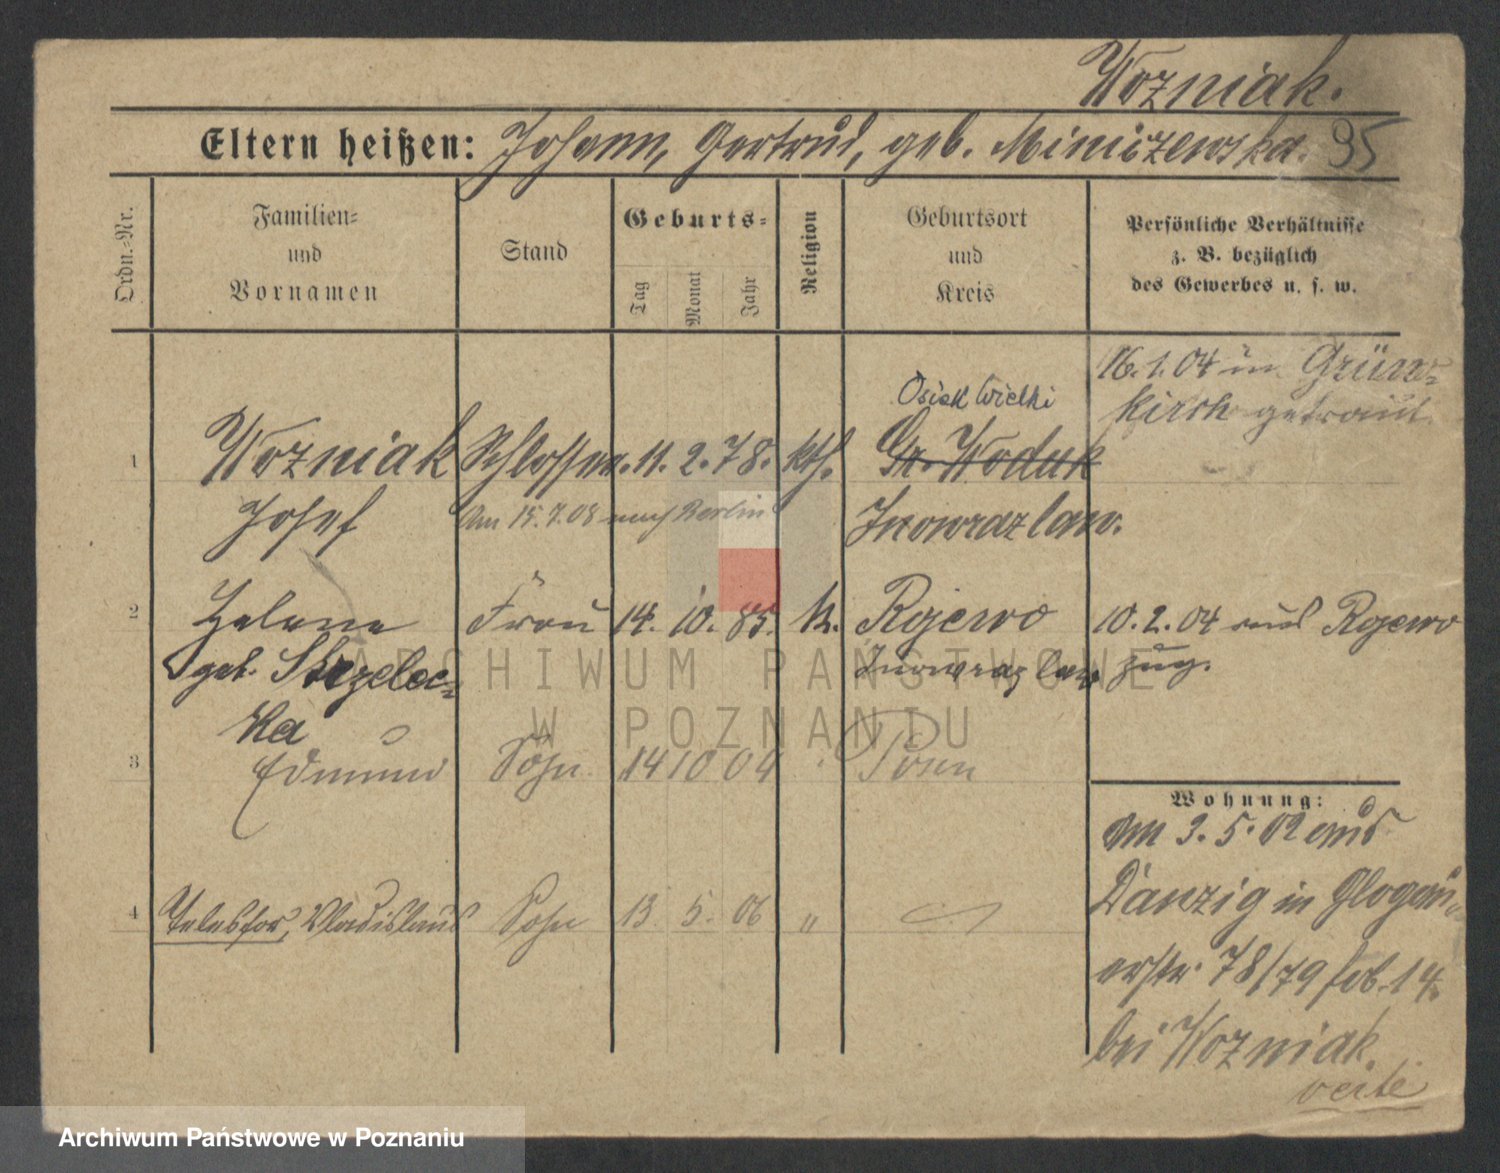 Wozniak.
Eltern heißen: Johann, Gertrud, geb. Minizewska. 95
Ordn.-Nr.
Familien-
und
Vornamen
Stand
Geburts-
Tag
Monat
Jahr
Religion
Geburtsort
und
Kreis
Persönliche Verhältnisse
z. B. bezüglich
des Gewerbes u. s. w.
16.1.04 in Grün-
kirch getraut.
Osiek Wielki
1 Wozniak Schlosser. 11. 2. 78. kth. Gr. Wodek
Josef Am 15.7.08 nach Berlin Inowrazlaw.
2 Helene Frau 14. 10. 85. k. Rojewo 10.2.04 aus Rojewo
geb. Strzelec- Inowrazlaw zug.
ka
3 Edmund Sohn 14 10 04 Posen
Wohnung:
am 3.5.02 aus
Danzig in Glogau
4 Telesfor, Vladislaus Sohn 13 5. 06 "
erstr. 78/79 14.
bei Wozniak.
verte
ARCHIWUM PAŃSTWOWE
W POZNANIU
Archiwum Państwowe w Poznaniu